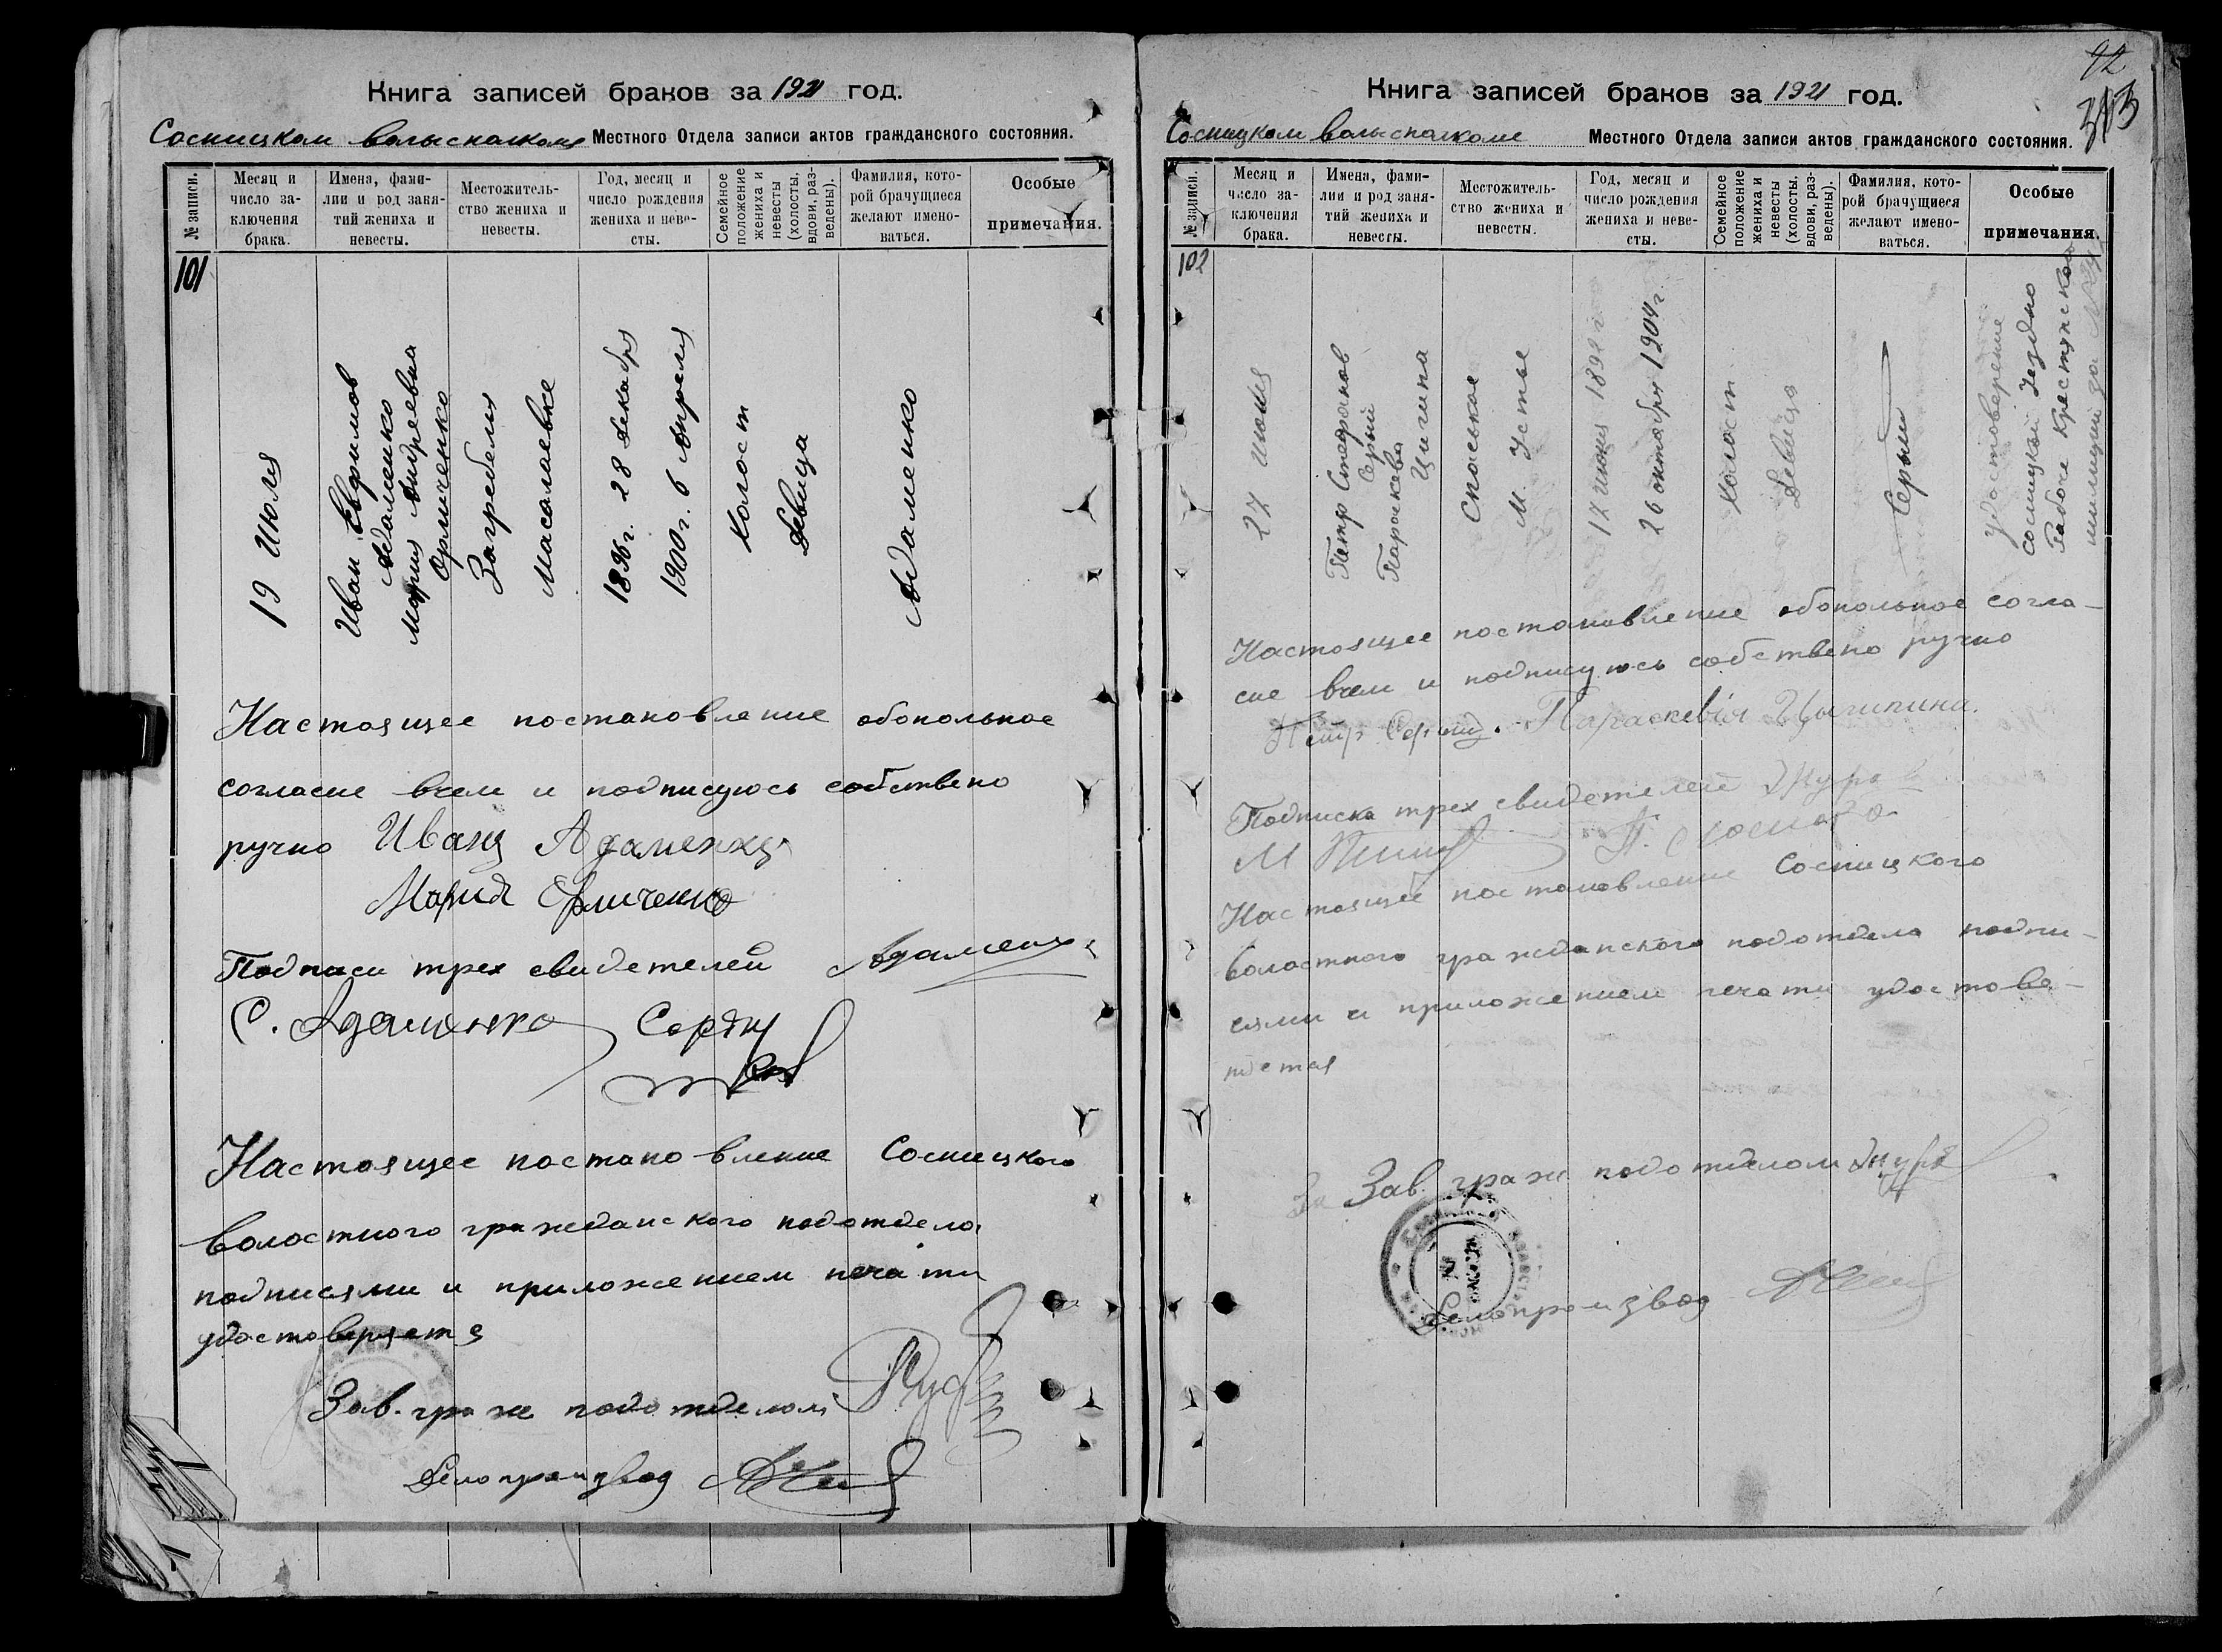 Книга записей браков за 1921 год.
Сосницком волысполкоме Местного Отдела записи актов гражданского состояния.
№ записи.
Месяц и число за-
ключения
брака.
Имена, фами-
лии и род заня-
тий жениха и
невесты.
Местожитель-
ство жениха и
невесты.
Год, месяц и
число рождения
жениха и неве-
сты.
Семейное
положение
жениха и
невесты
(холосты,
вдови, раз-
ведены).
Фамилия, кото-
рой брачущиеся
желают имено-
ваться.
Особые
примечания.
101
19 Июля
Иван Евфимов
Адаменко
Мария Андреевна
Ермиченко
Загребелля
Масалаевке
1896 г. 28 декабря
1900 г. 6 Апреля
Холост
Девица
Адаменко
Настоящее постановление обопольное
согласие вчем и подписуюсь собствено
ручно Иванъ Адаменко
Мария Ермиченко
Подписи трех свидетелей Адаменко
С. Адаменко
Настоящее постановление Сосницкого
волостного гражданского подотдела
подписями и приложением печати
удостоверяетя
Зав. граж подотделом
Делопроизвод
92
Книга записей браков за 1921 год.
Сосницком волысполкоме Местного Отдела записи актов гражданского состояния.
№ записи.
Месяц и
число за-
ключения
брака.
Имена, фами-
лии и род заня-
тий жениха и
невесты.
Местожитель-
ство жениха и
невесты.
Год, месяц и
число рождения
жениха и неве-
сты.
Семейное
положение
жениха и
невесты
(холосты,
вдови, раз-
ведены).
Фамилия, кото-
рой брачущиеся
желают имено-
ваться.
Особые
примечания.
102
27 Июля
Петр Стефанов
Серый
Параскева
Цигипа
Спаське
М. Устье
26 октября 1904 г.
Холост
Девица
Серый
удостоверение
сосницкой Уездно
Рабоче Крестянской
милиции за №
Настоящее постановление обопольное согла-
сие вчем и подписуюсь собствено ручно
Петр Серый. Параскевія Цыгипина.
Подписка трех свидетелей
Настоящее постановление Сосницкого
волостного гражданского подотдела подпи-
сями и приложением печати удостове-
ряется
За Зав. граж подотделом
Делопроизвод